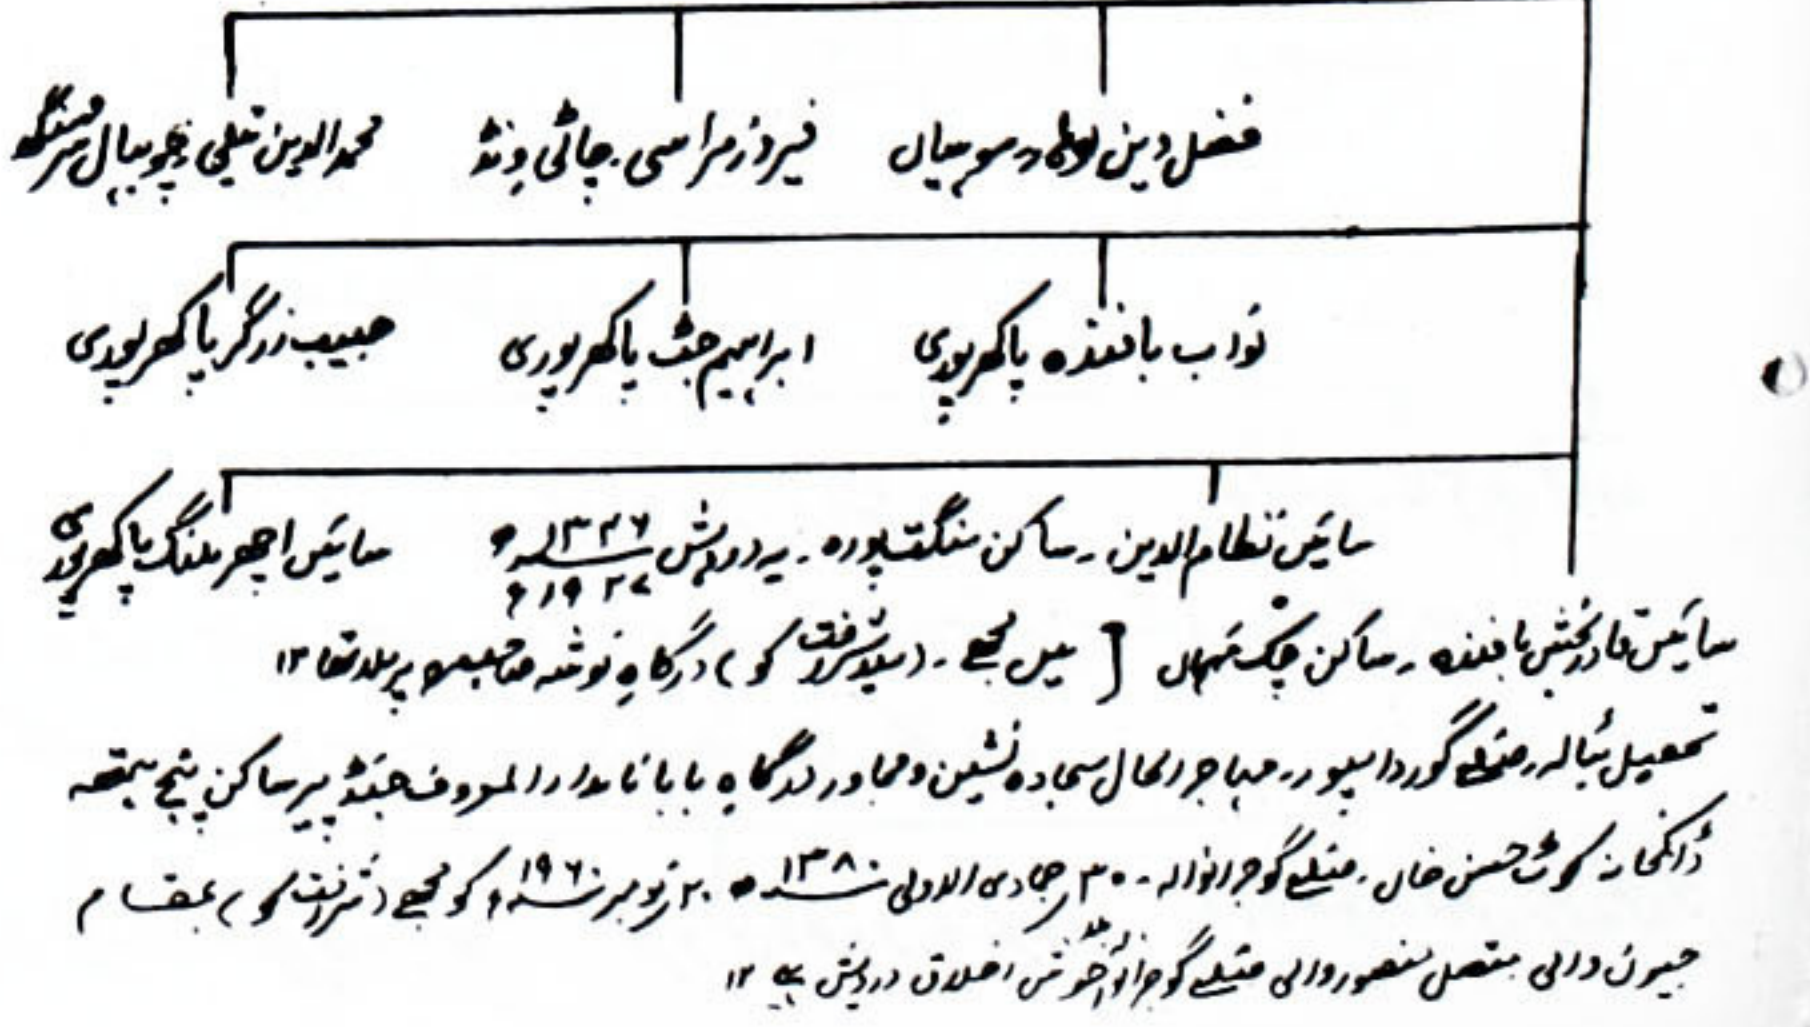 فضل دین لوہار سوہیاں فیروز مراسی۔ چاٹی ونڈ محمد الدین تیلی
نواب بافندہ پاکھرپوری ابراہیم جٹ پاکھرپوری حبیب زرگر پاکھرپوری
سائیں نظام الدین۔ ساکن سنگت پورہ۔ یہ درویش ۱۳۴۶ھ سائیں اچھر ملنگ پاکھرپوری
۱۹۲۷ء
سائیں قادر بخش بافندہ۔ ساکن چک [ میں مجھے۔ (سید شرافت کو) درگاہِ نوشہ صاحب پر ملا تھا ۱۲
تحصیل بٹالہ۔ ضلع گورداسپور۔ مہاجر الحال سجادہ نشین و مجاور درگاہِ بابا نامدار المعروف جھنڈا پیر ساکن پنج ہتھہ
ڈاکخانہ کوٹ حسن خاں۔ ضلع گوجرانوالہ۔ ۳۰ جمادی الاولیٰ ۱۳۸۰ھ ۲۰ نومبر ۱۹۶۰ء کو مجھے (شرافت کو) بمقام
جیون والی متصل منصور والی ضلع گوجرانوالہ خوش اخلاق درویش ہے ۱۲